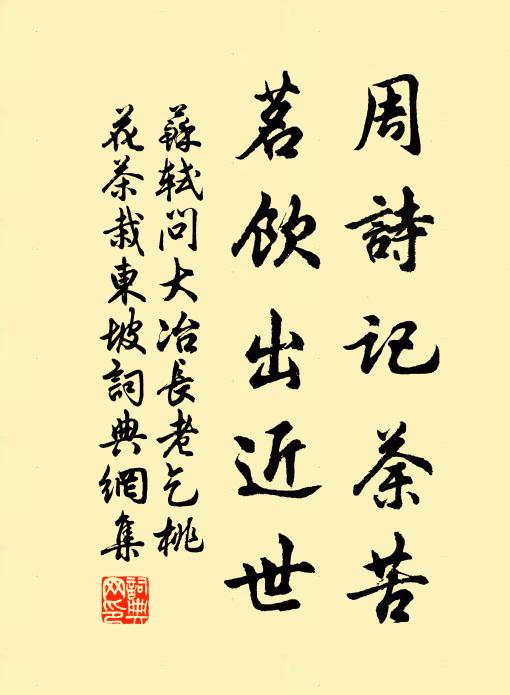 周詩記茶苦
茗飲出近世
蘇軾問大冶長老乞桃
花茶栽東坡詞典網集
詞典网印